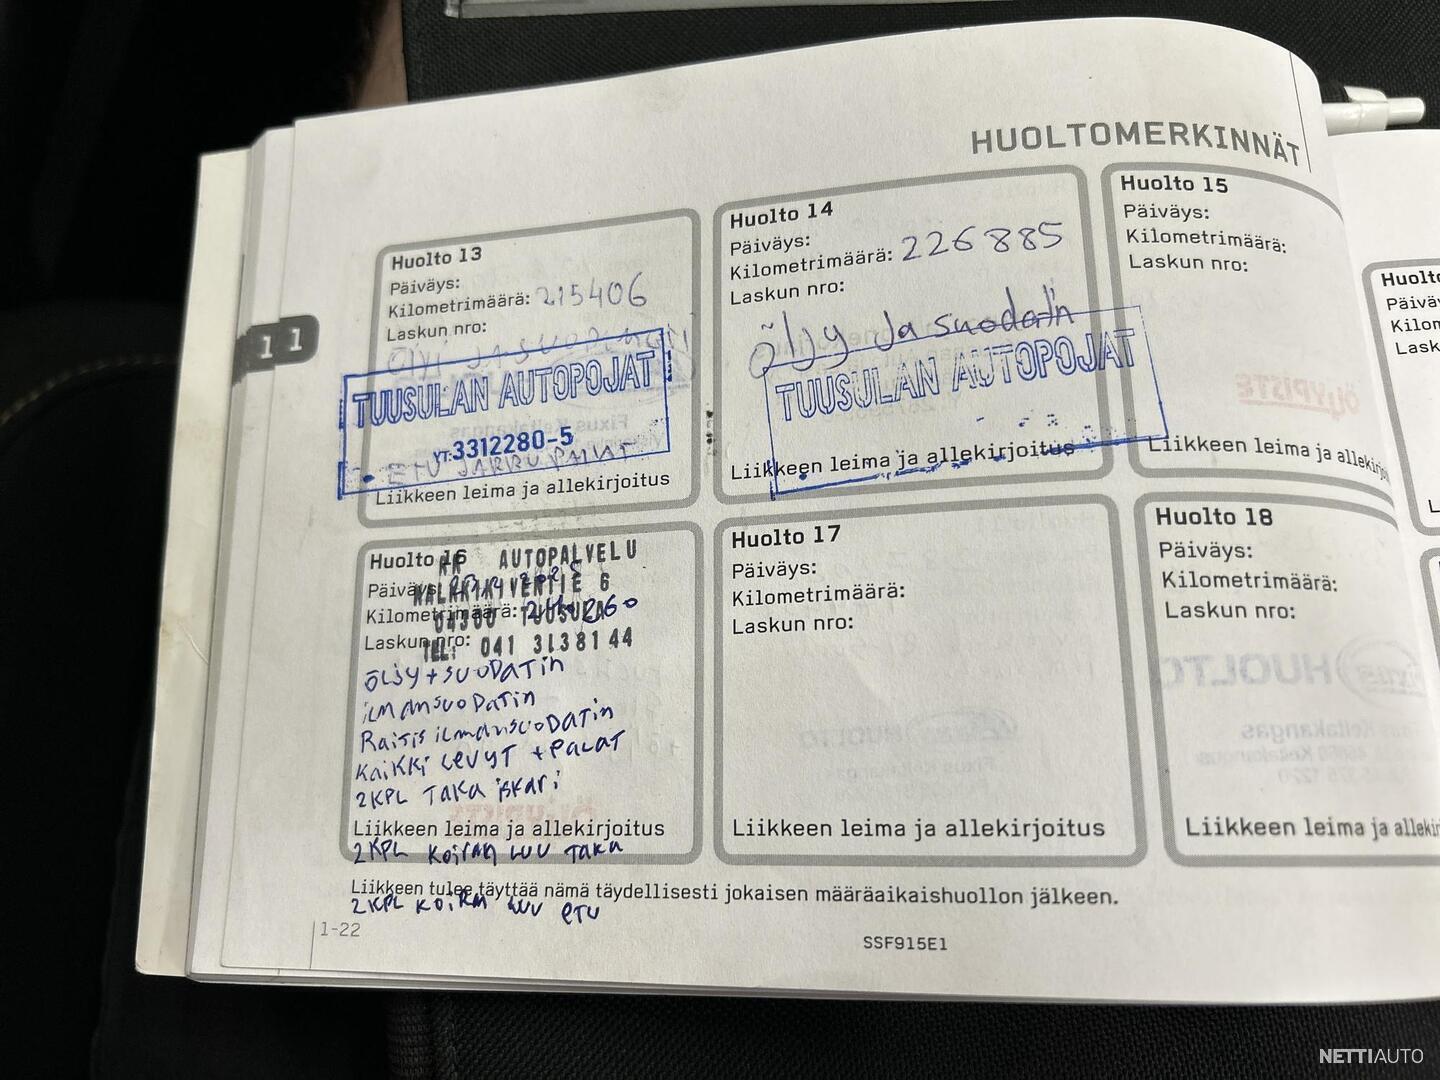 HUOLTOMERKINNÄT
1 1
Huolto 13
Päiväys:
Kilometrimäärä: 215406
Laskun nro:
TUUSULAN AUTOPOJAT
YT:3312280-5
ETU JARRUPALAT
Liikkeen leima ja allekirjoitus
Huolto 14
Päiväys:
Kilometrimäärä: 226885
Laskun nro:
öljy ja suodatin
TUUSULAN AUTOPOJAT
Liikkeen leima ja allekirjoitus
Huolto 15
Päiväys:
Kilometrimäärä:
Laskun nro:
ÖLJYPISTE
Liikkeen leima ja allekirjoi
Huolto 16
AUTOPALVELU
Päiväys:
KALKKIKIVENTIE 6
Kilometrimäärä:
04300 TUUSULA
Laskun nro:
TEL: 041 3138144
ÖLJY + SUODATin
iLMANSUODATin
RAITIS iLMANSUODATin
KAIKKI LEVYT + PALAT
2KPL TAKA iskari
Liikkeen leima ja allekirjoitus
2KPL KOIRAN LUU TAKA
Huolto 17
Päiväys:
Kilometrimäärä:
Laskun nro:
Liikkeen leima ja allekirjoitus
Huolto 18
Päiväys:
Kilometrimäärä:
Laskun nro:
HUOLTO
Liikkeen leima ja allekir
Huolto
Liikkeen tulee täyttää nämä täydellisesti jokaisen määräaikaishuollon jälkeen.
2KPL KOIRAN LUU ETU
1-22
SSF915E1
NETTIAUTO